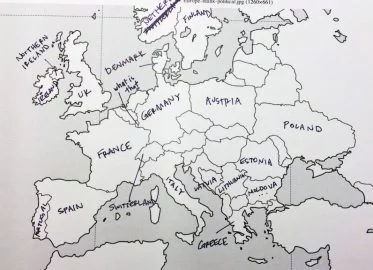 Europe-blank-political.jpg (1260×861)
FINLAND
NORTHERN
IRELAND
DENMARK
what is
that
ICELAND
UK
GERMANY
AUSTRIA
POLAND
FRANCE
ESTONIA
ITALY
LATVIA
LITHUANIA
MOLDOVA
SWITZERLAND
PORTUGAL
SPAIN
GREECE